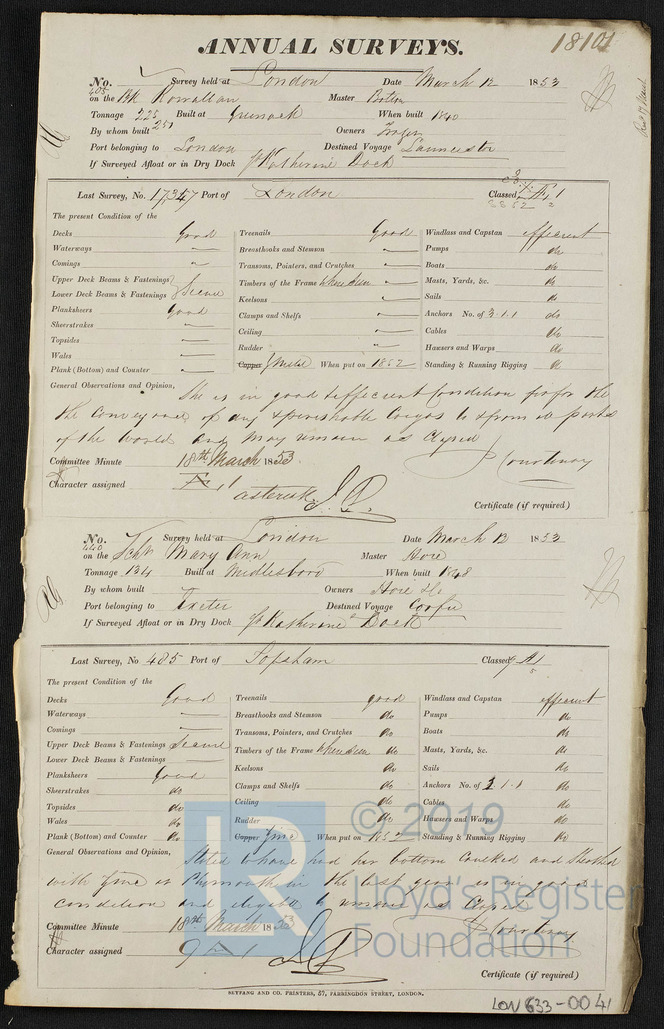 ANNUAL SURVEYS.
18101
No. 405 Survey held at London Date March 12 1853
on the Bk Rowallan Master
Tonnage 225 251 Built at Greenock When built 1840
By whom built Owners
Port belonging to London Destined Voyage Launceston
If Surveyed Afloat or in Dry Dock St Katherine Dock
Last Survey, No. 17347 Port of London Classed Æ 1
The present Condition of the
Decks Good Treenails Good Windlass and Capstan efficient
Waterways " Breasthooks and Stemson " Pumps do
Comings " Transoms, Pointers, and Crutches " Boats do
Upper Deck Beams & Fastenings Timbers of the Frame where seen " Masts, Yards, &c. do
Lower Deck Beams & Fastenings } Secure Keelsons " Sails do
Planksheers good Clamps and Shelfs " Anchors No. of 3.1.1 do
Sheerstrakes " Ceiling " Cables do
Topsides " Rudder " Hawsers and Warps do
Wales " Copper Y Metal When put on 1852 Standing & Running Rigging do
Plank (Bottom) and Counter "
General Observations and Opinion, She is in good & efficient Condition for the
the Conveyance of dry & perishable Cargos to & from all parts
of the World and may remain as Classed
Committee Minute 18th March 1853
Character assigned Æ 1
asterisk
Courtenay
Certificate (if required)
No. 440 Survey held at London Date March 12 1853
on the Schr Mary Ann Master Hore
Tonnage 134 Built at Middlesboro When built 1848
By whom built Owners Hore & Co
Port belonging to Exeter Destined Voyage Corfu
If Surveyed Afloat or in Dry Dock St Katherine Dock
Last Survey, No 485 Port of Topsham Classed 9 A1
The present Condition of the
Decks Good Treenails good Windlass and Capstan efficient
Waterways Breasthooks and Stemson do Pumps do
Comings Transoms, Pointers, and Crutches do Boats do
Upper Deck Beams & Fastenings Secure Timbers of the Frame where seen do Masts, Yards, &c. do
Lower Deck Beams & Fastenings Keelsons do Sails do
Planksheers Good Clamps and Shelfs do Anchors No. of 3.1.1 do
Sheerstrakes do Ceiling do Cables do
Topsides do Rudder do Hawsers and Warps do
Wales do Copper Zinc When put on 1852 Standing & Running Rigging do
Plank (Bottom) and Counter do
General Observations and Opinion, Stated to have had her bottom Caulked and Sheathed
with Zinc at Plymouth in the last year is in good
condition and eligible to remain as Classed
Committee Minute 18th March 1853
Character assigned 9 A 1
Courtenay
Certificate (if required)
RUTPANG AND CO. PRINTERS, 57, FARRINGDON STREET, LONDON.
LON 633-0041
© 2019
LR
Lloyd's Register
Foundation